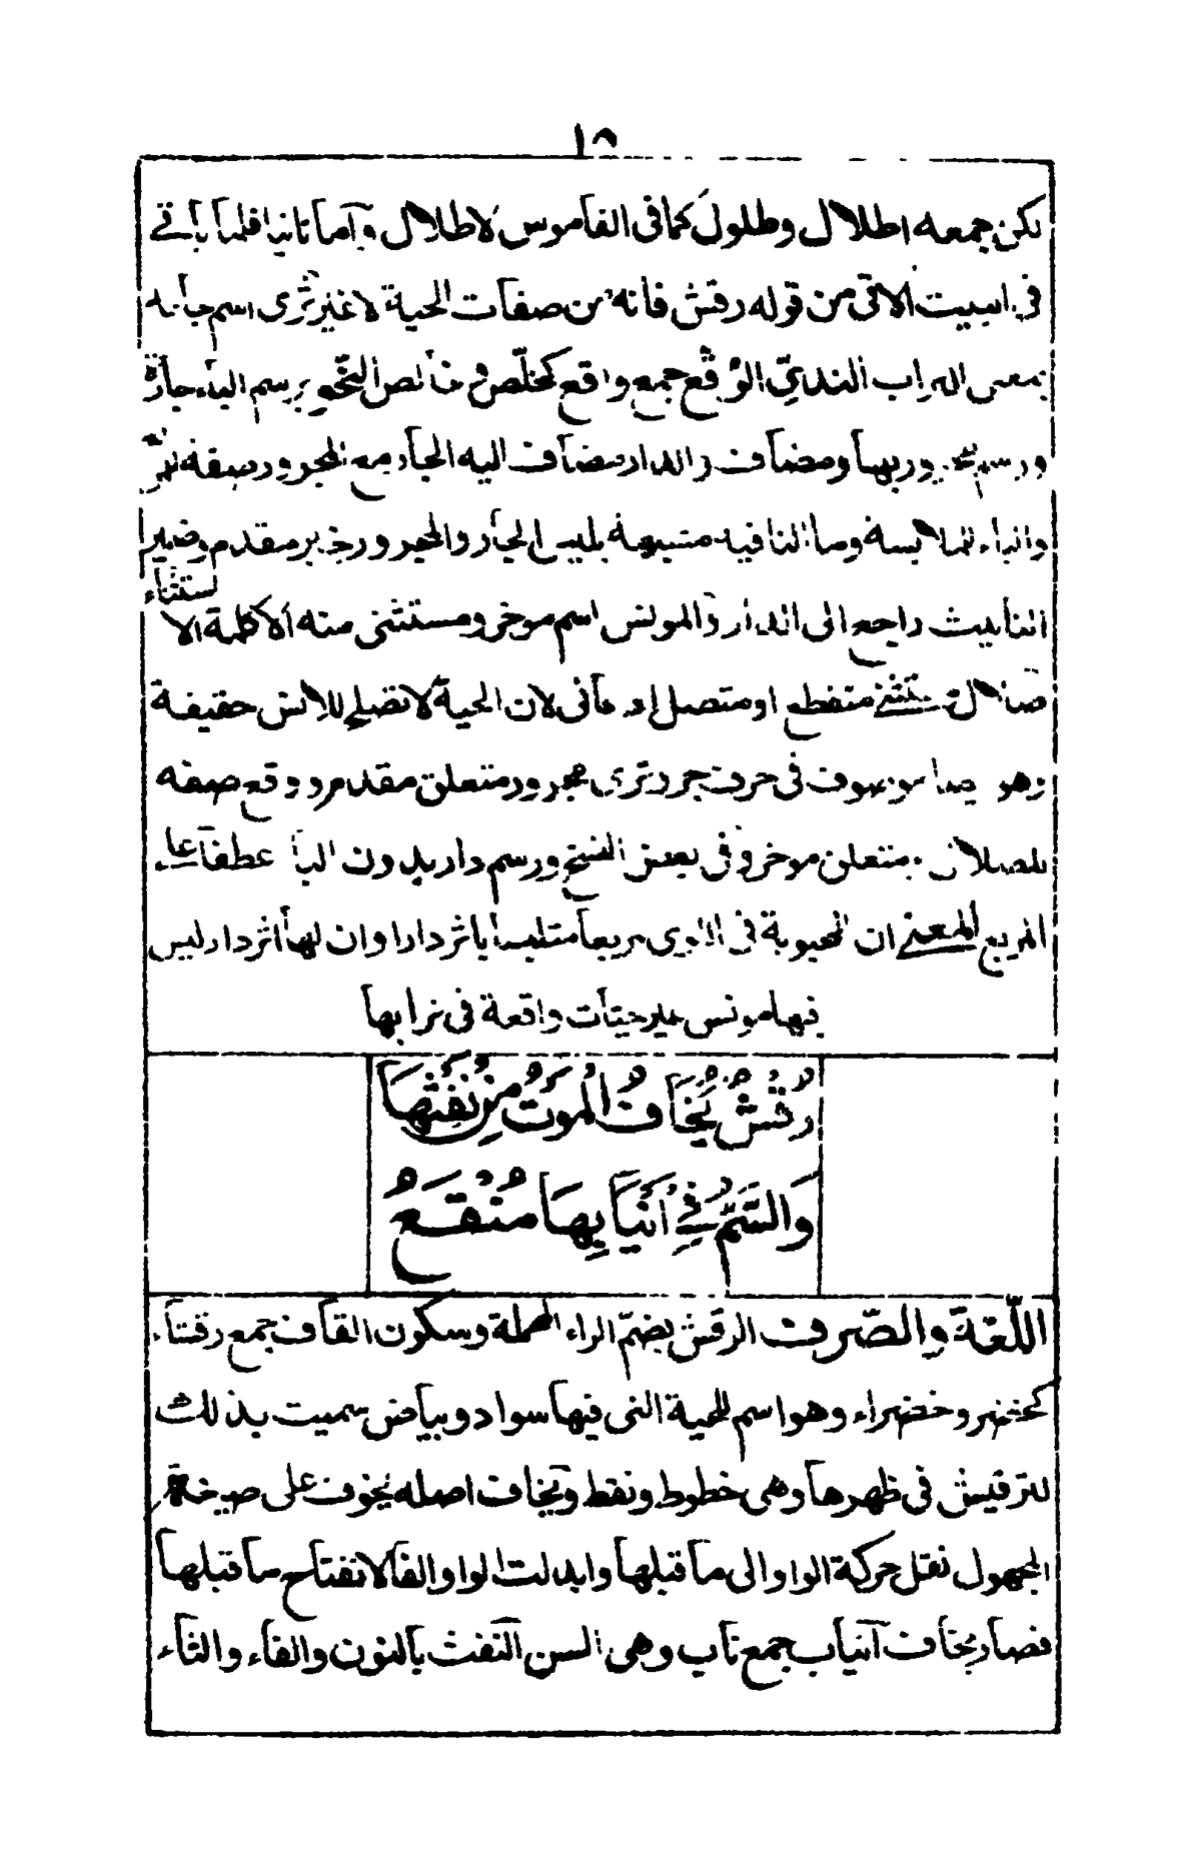 ١٥
لكن جمعه اطلال وطلول كما فى القاموس لاطلال واما ثانيا فلما يأتى
فى البيت الاتى من قوله رقش فانه من صفات الحية لا غير ثرى اسم
بمعنى التراب الندىّ الوُقّع جمع واقع كخلّص فى خالص النحو برسم الباء جارّة
ورسم مجرور بها ومضاف والدار مضاف اليه الجار مع المجرور صفة
والباء للملابسة وما النافية مشبهة بليس الجار والمجرور خبر مقدم وضمير
التأنيث راجع الى الدار والمونس اسم موخر ومستثنى منه الا كلمة الاستثناء
صلال مستثنى منقطع او متصل لان الحية لا تصلح للانس حقيقة
وهو موصوف فى حرف جر وثرى مجرور متعلق مقدم ووقع صفه
للصلال متعلق موخر وفى بعض النسخ ورسم دار بدون البا عطفا على
المربع المعنى ان المحبوبة فى اللوى مربعا متلبسا باثر دارا وان لها اثر دار ليس
فيها مونس غير حيّات واقعة فى ترابها
رُقْشٌ يُخَافُ الْمَوْتُ مِنْ نَفْثِهَا
وَالسَّمُّ فِى أَنْيَابِهَا مُنْقَعُ
اللّغة والصّرف الرقش بضمّ الراء المهملة وسكون القاف جمع رقشاء
كخضر وخضراء وهو اسم للحية التى فيها سواد وبياض سميت بذلك
للترقيش فى ظهرها وهى خطوط ونقط ويخاف اصله يخوف على صيغة
المجهول نقل حركة الواو الى ما قبلها وابدلت الواو الفا لانفتاح ما قبلها
فصار يخاف انياب جمع ناب وهى السن النفث بالنون والفاء والثاء